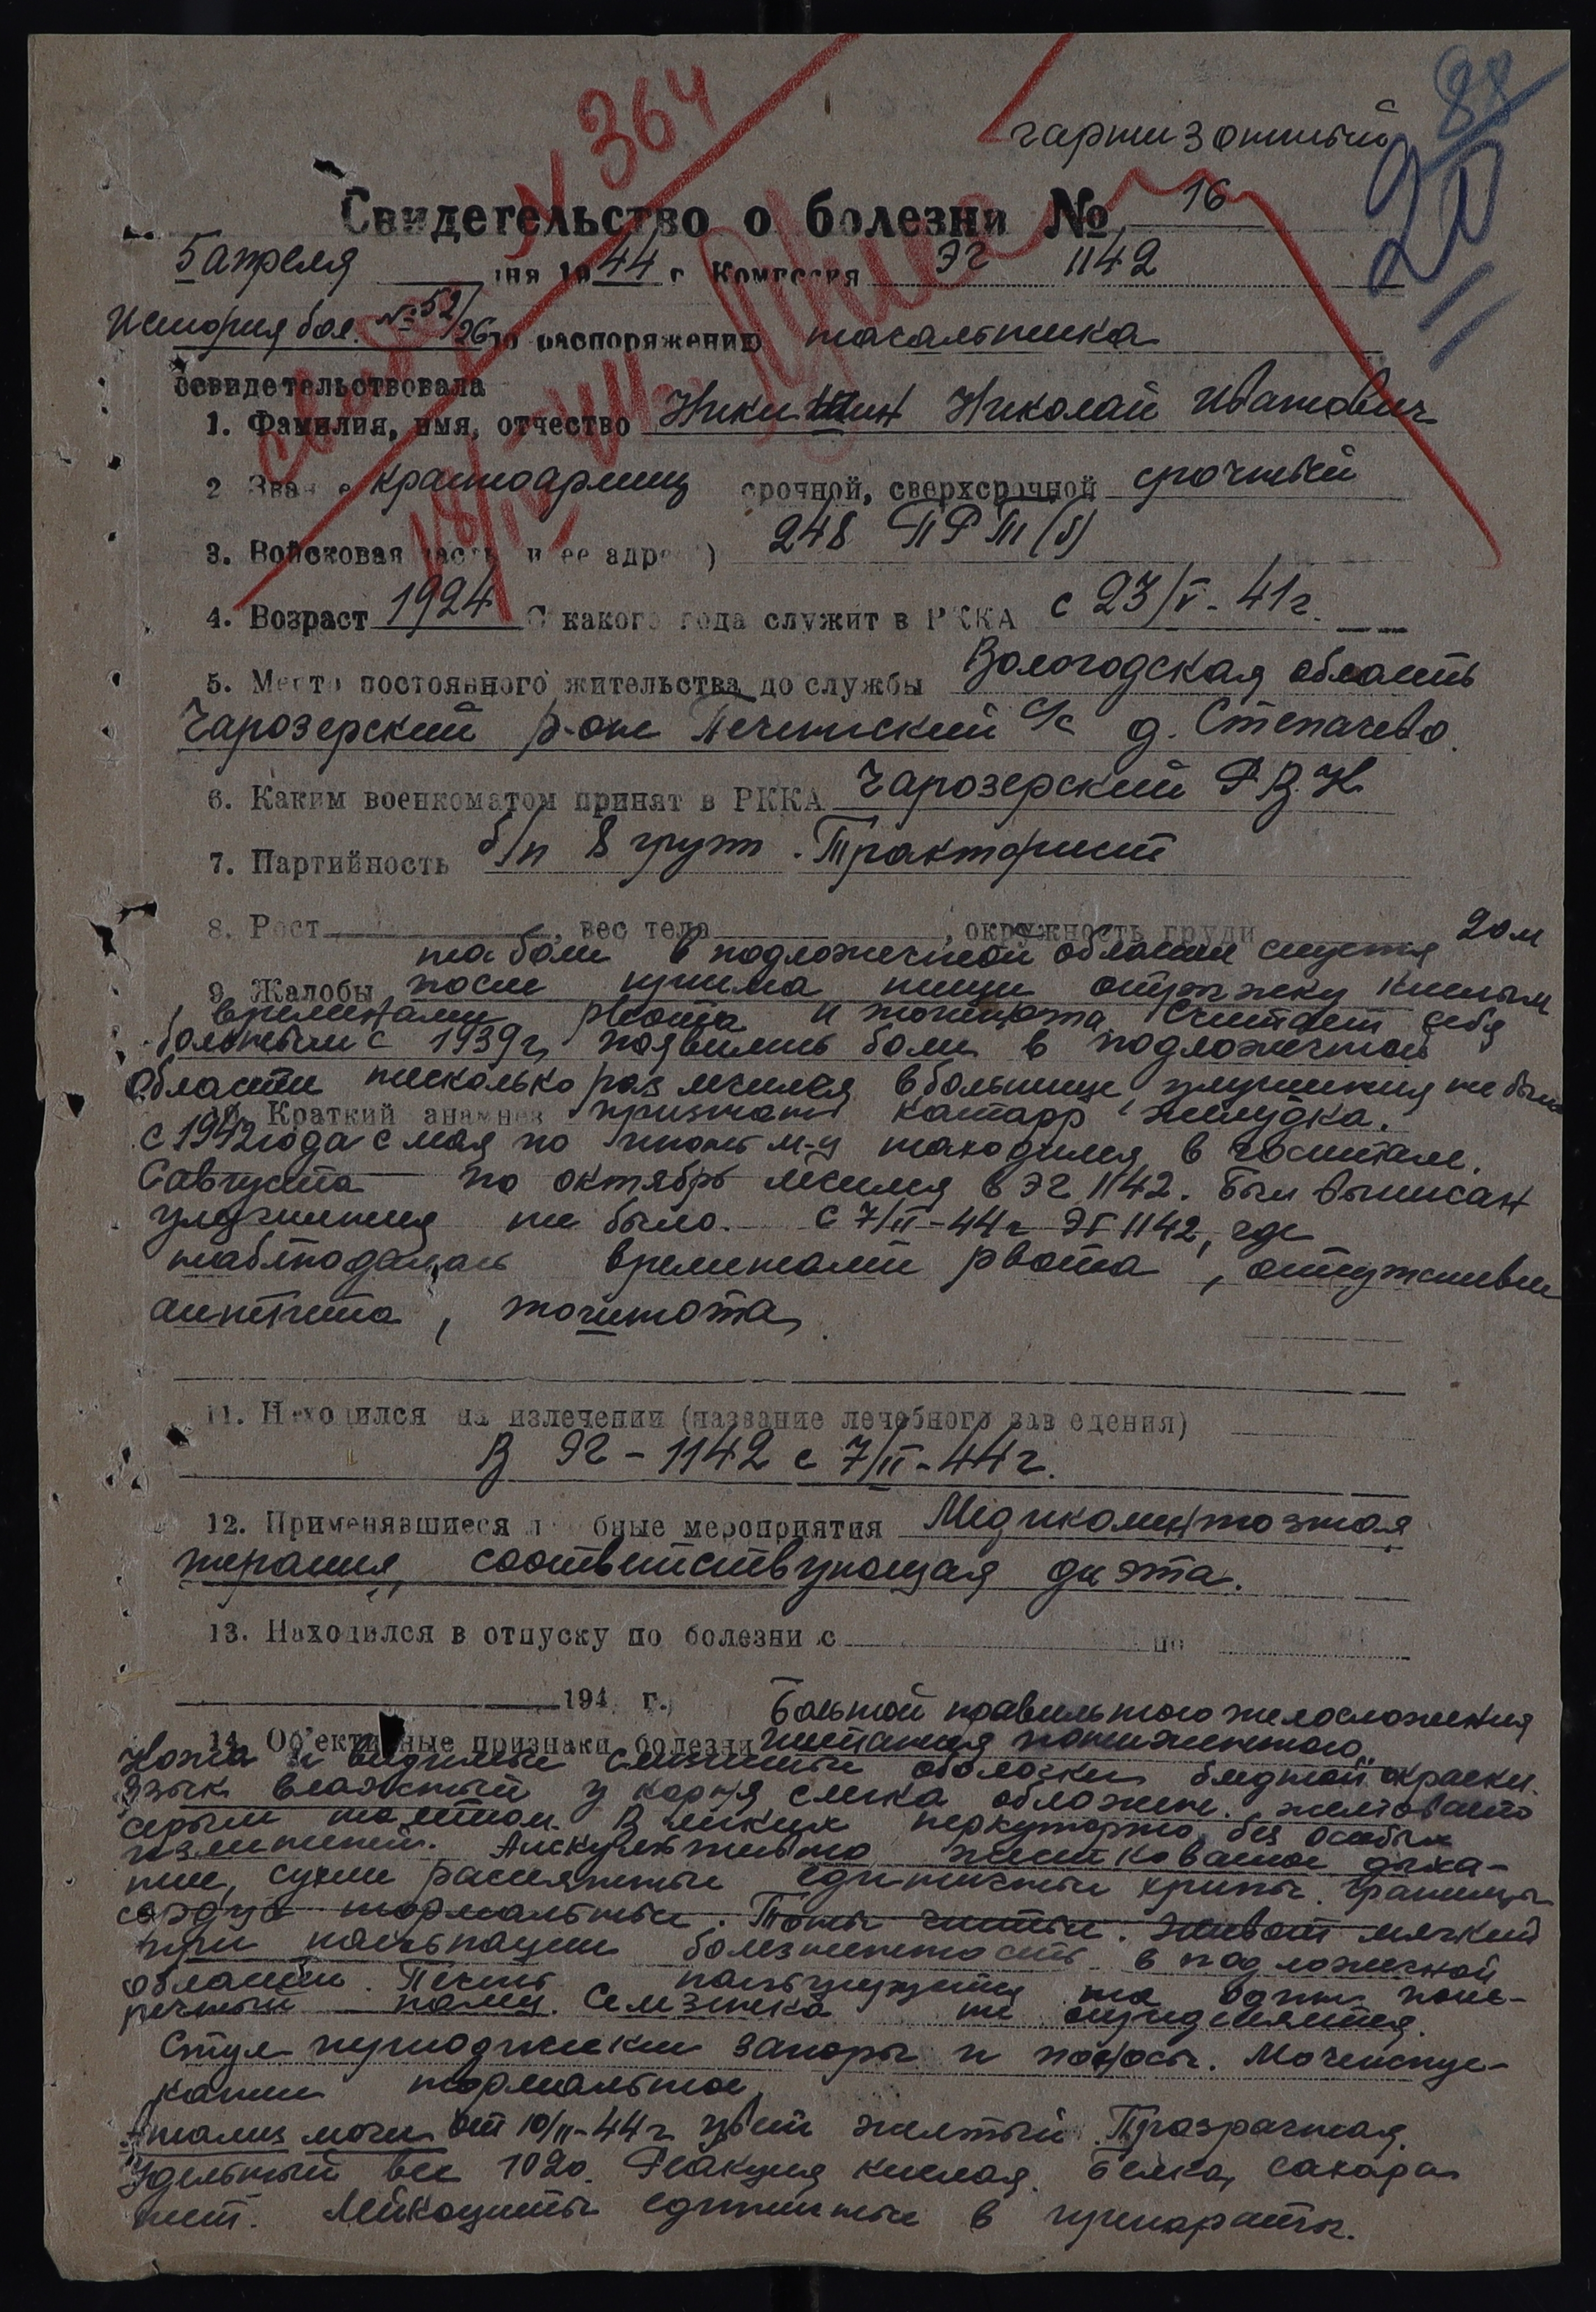 88
20
N 364
гарнизонный
Свидетельство о болезни № 16
5 апреля дня 1944 г. Комиссия ЭГ 1142
История бол. № 52/26 по распоряжению начальника
освидетельствовала
1. Фамилия, имя, отчество Никишин Николай Иванович
2 Звание красноармеец срочной, сверхсрочной срочный
3. Войсковая часть и ее адрес) 248
4. Возраст 1924 С какого года служит в РККА с 23/V-41г.
5. Место постоянного жительства до службы Вологодская область
Чарозерский р-он Печенгский с/с д. Степачево.
6. Каким военкоматом принят в РККА Чарозерский Р.В.К.
7. Партийность б/п 8 групп. Тракторист
8. Рост , вес тела , окружность груди
на боли в подложечной области спустя 20м
9. Жалобы после приема пищи отрыжку кислым
временами рвота и тошнота. Считает себя
больным с 1939г, появились боли в подложечной
области несколько раз лечился в больнице, улучшения не было
10. Краткий анамнез признан катарр желудка.
с 1942 года с мая по июнь м-ц находился в госпитале.
С августа по октябрь лечился в ЭГ 1142. Был выписан
улучшения не было. С 7/II-44г ЭГ 1142, где
наблюдалась временами рвота, отсутствие
аппетита, тошнота.
11. Находился на излечении (название лечебного заведения)
В ЭГ-1142 с 7/II-44г.
12. Применявшиеся лечебные мероприятия Медикоментозная
терапия, соответствующая диэта.
13. Находился в отпуску по болезни с по
194 г.
Больной правильного телосложения
14. Об'ективные признаки болезни питания пониженного.
Кожа и видимые слизистые оболочки бледной окраски.
Язык влажный у корня слегка обложен желтовато
серым налетом. В легких перкуторно без особых
изменений. Аискультивно жестковатое дыха-
ние, сухие рассеянные единичные хрипы. Границы
сердца нормальные. Тоны чистые. Живот мягкий
при пальпации болезненность в подложечной
области. Печень пальпируется на один попе-
речный палец. Селезенка не определяется.
Стул периодически запоры и поносы. Мочеиспус-
кание нормальное.
Анализ мочи от 10/II-44г цвет желтый. Прозрачная.
Удельный вес 1020. Реакция кислая. Белка, сахара
нет. Лейкоциты единичные в препараты.